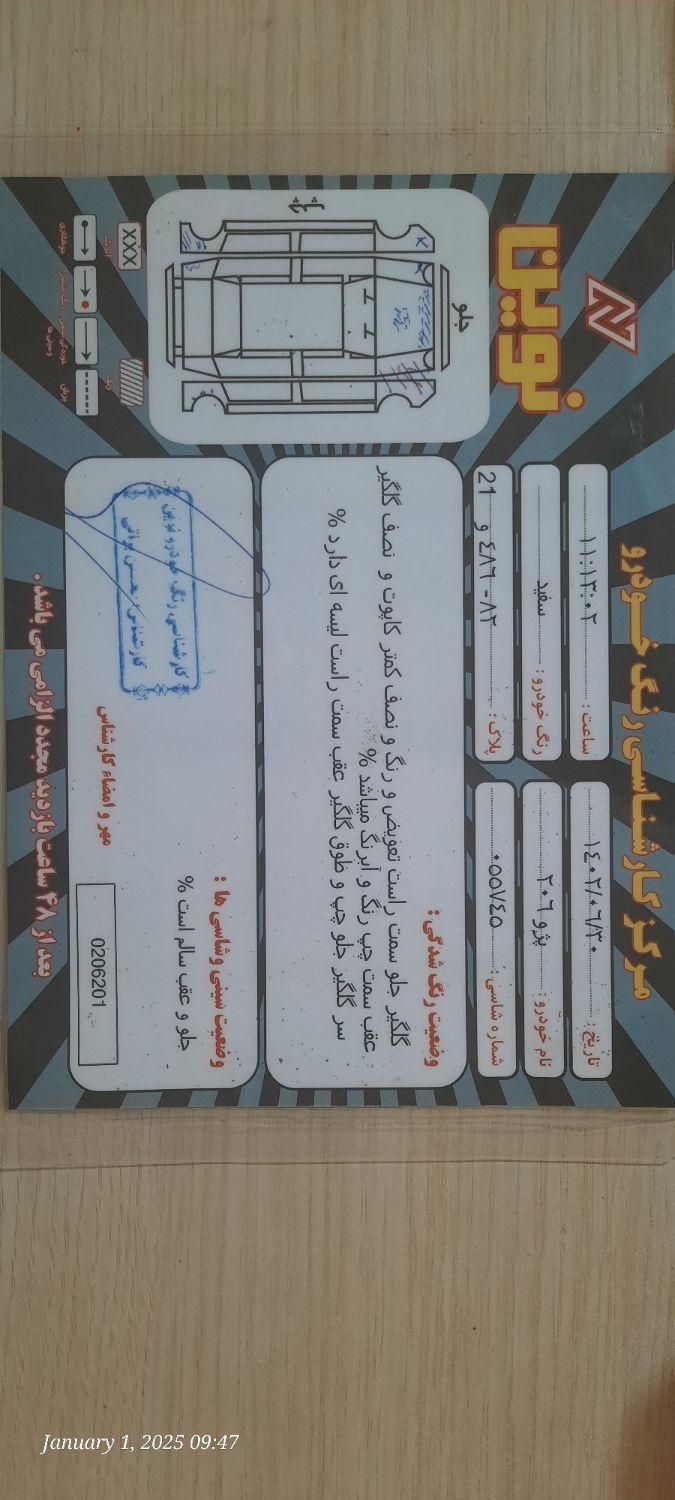 مرکز کارشناسی رنگ خودرو
نوین
تاریخ : ۱۴۰۲/۰۶/۳۰
ساعت : ۱۱:۱۳:۰۲
نام خودرو : پژو ۲۰۶
رنگ خودرو : سفید
شماره شاسی : ۰۵۵۷۴۵
پلاک : ۸۲-۴۸۶ و 21
جلو
وضعیت رنگ شدگی :
گلگیر جلو سمت راست تعویض و رنگ و نصف کمتر کاپوت و نصف گلگیر
عقب سمت چپ رنگ و ابرنگ میباشد %
سر گلگیر جلو چپ و طوق گلگیر عقب سمت راست لیسه ای دارد %
XXX
وضعیت سینی و شاسی ها :
جلو و عقب سالم است %
کارشناسی رنگ خودرو نوین
مهر و امضاء کارشناس
0206201
بعد از ۴۸ ساعت بازدید مجدد الزامی می باشد .
January 1, 2025 09:47